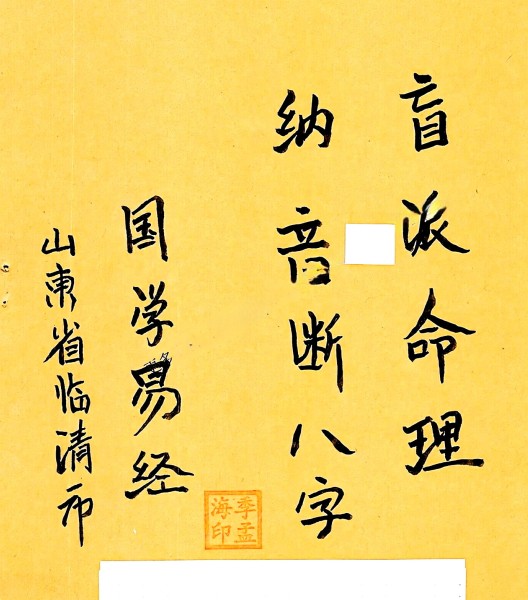 盲派命理
纳音断八字
国学易经
山东省临清市
季孟海印